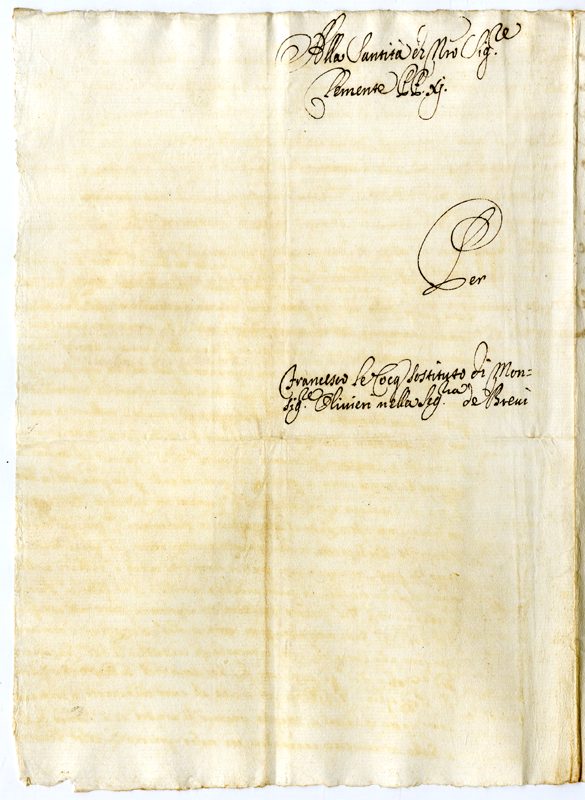 Alla Santità di Nro Sig.re
Clemente PP. xj.
Per
Francesco Le Cocq Sostituto di Mon=
sig.re Olivieri nella Seg.ria de Brevi